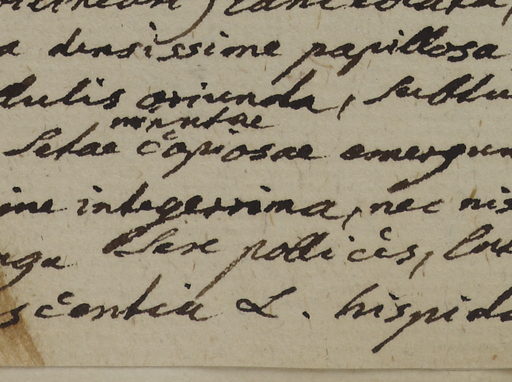 lanceolata,
a densissime papillosa
oriunda, subtu
minutae
Setae copiosae emergun
ine integerrima, nec nis
nga Sex pollices, lat
scentia L. hispida